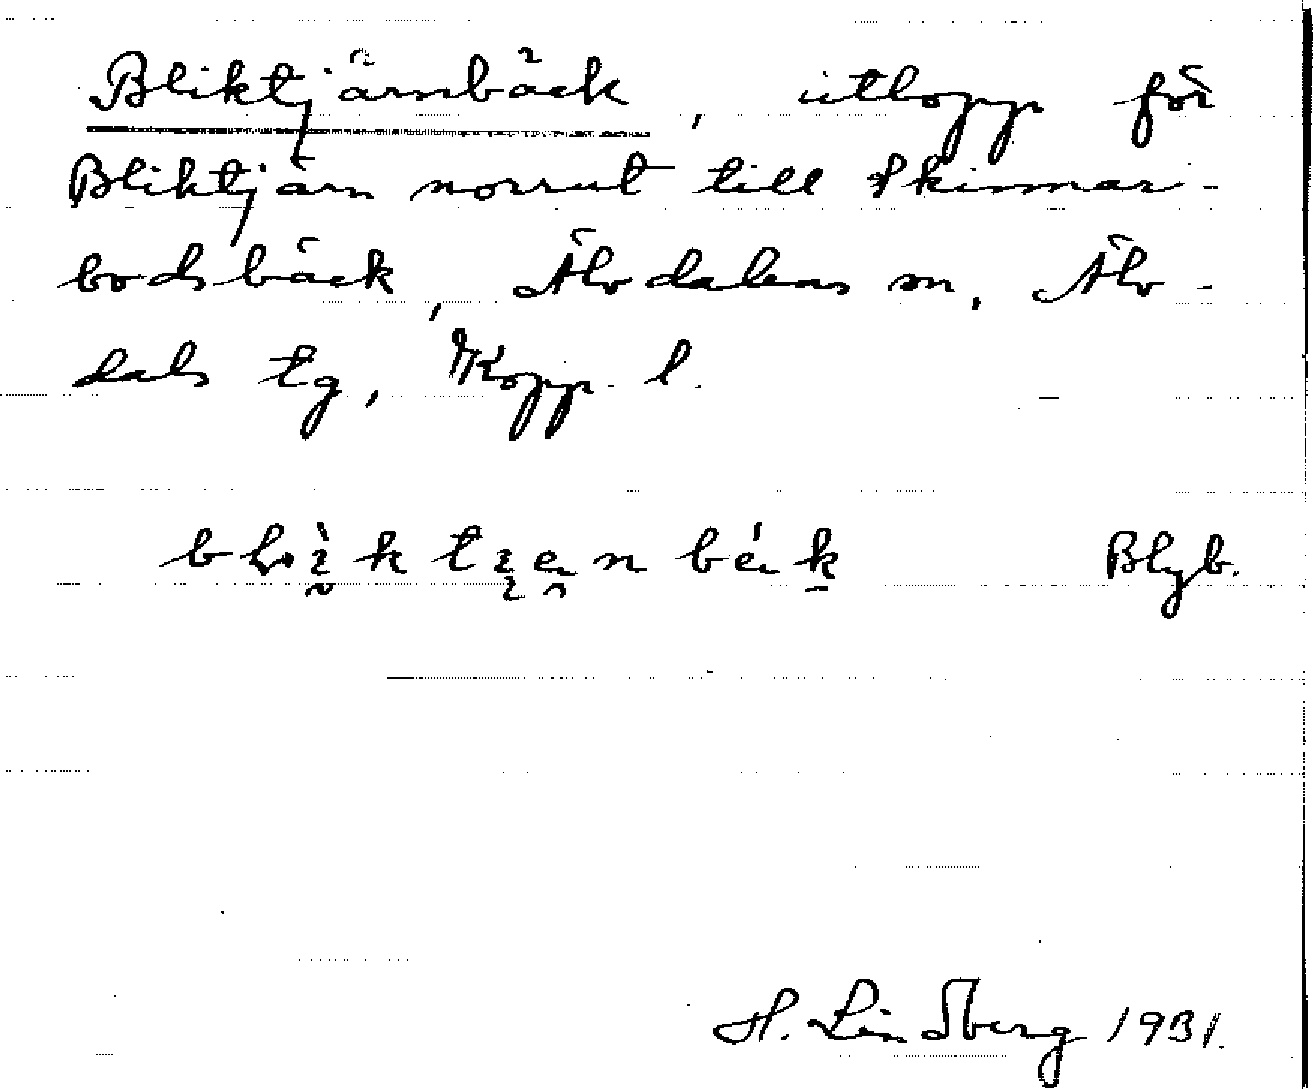 Bliktjärnbäck, utlopp för
Bliktjärn norrut till Skinnar-
bodsbäck, Älvdalens sn, Älv-
dals tg, Kopp. l.
Blyb.
H. Lindberg 1931.